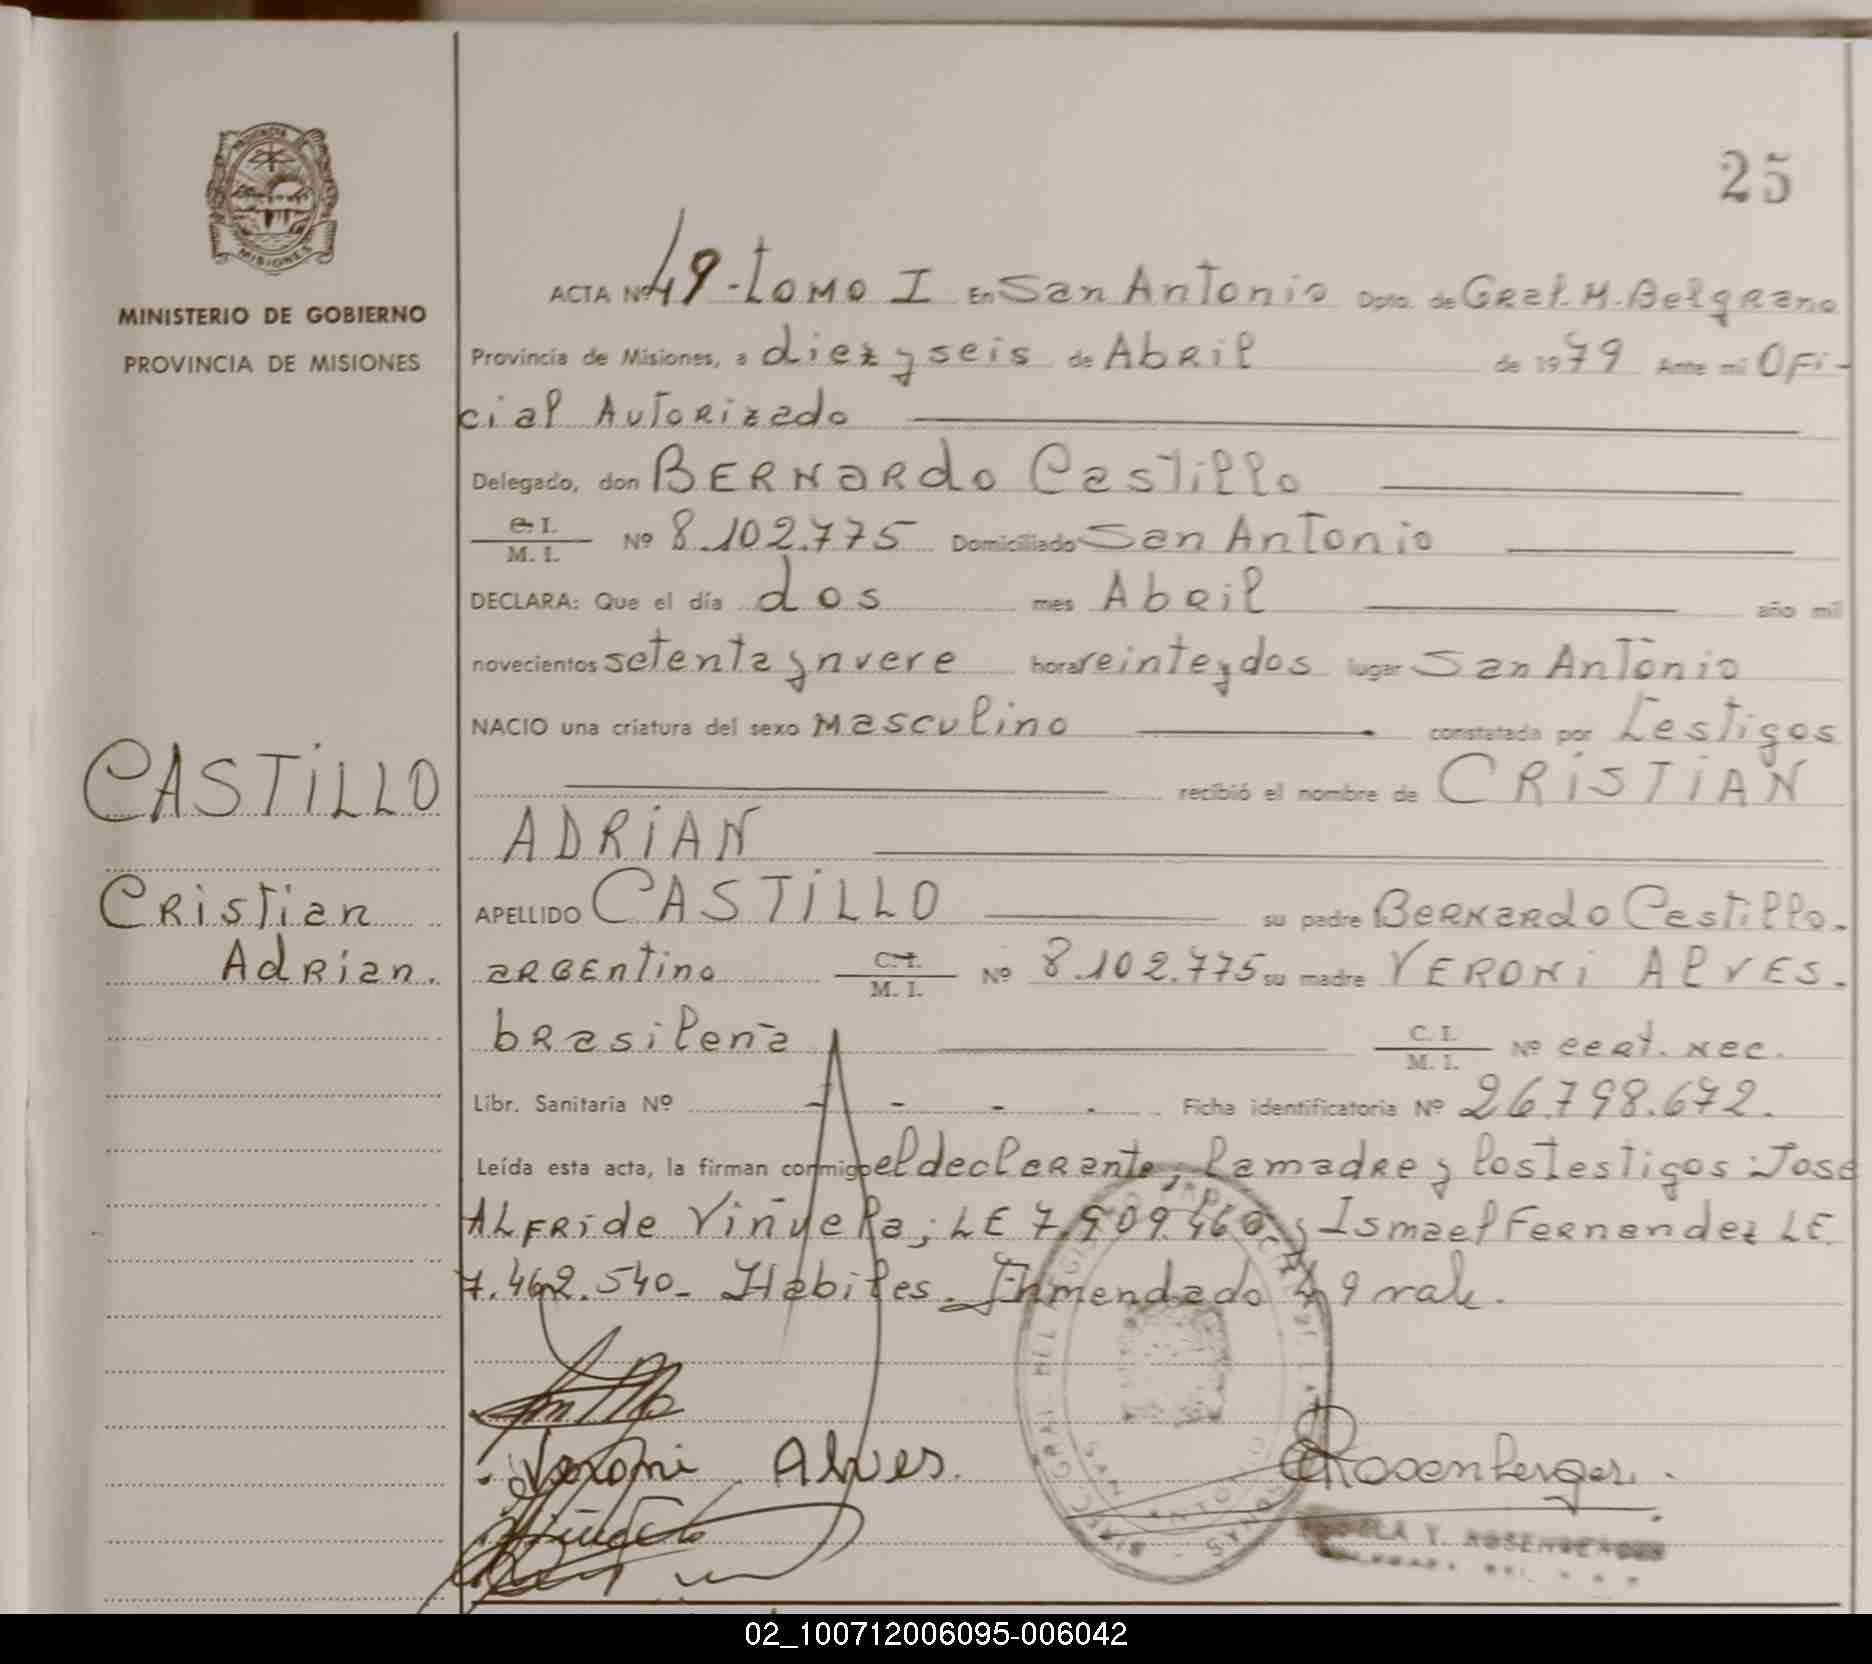 25
PROVINCIA
MISIONES
MINISTERIO DE GOBIERNO
PROVINCIA DE MISIONES
ACTA Nº 49-Tomo I En San Antonio Dpto. de Gral. M. Belgrano
Provincia de Misiones, a diez y seis de Abril de 1979 Ante mi Ofi-
cial Autorizado
Delegado, don BERNARdo Castillo
C. I. / M. I. Nº 8.102.775 Domiciliado San Antonio
DECLARA: Que el día dos mes Abril año mil
novecientos setenta y nueve hora veinte y dos lugar San Antonio
NACIO una criatura del sexo Masculino constatada por Testigos
recibió el nombre de CRiSTiAN
ADRiAN
APELLIDO CASTiLLO su padre Bernardo Castillo.
argentino C. I. / M. I. Nº 8.102.775 su madre VERONi Alves.
brasileña C. I. / M. I. Nº cert. nec.
Libr. Sanitaria Nº - - - - Ficha identificatoria Nº 26.798.672.
Leída esta acta, la firman conmigo el declarante, la madre y los Testigos: Jose
ALFRide Viñuela; LE 7.509.460 y Ismael Fernandez LE
7.462.540- Habiles. Enmendado 49 vale.
CASTiLLO
Cristian
Adrian.
Veroni Alves.
Rosenberger.
Y. ROSENBERGER
SAN ANTONIO
02_100712006095-006042